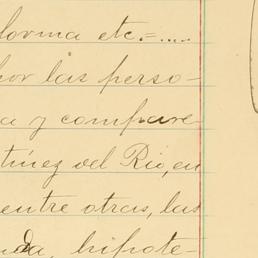 forma etc.=.....
por las perso-
a y compare-
tínez del Rio, en
entre otras, las
da, hipote-